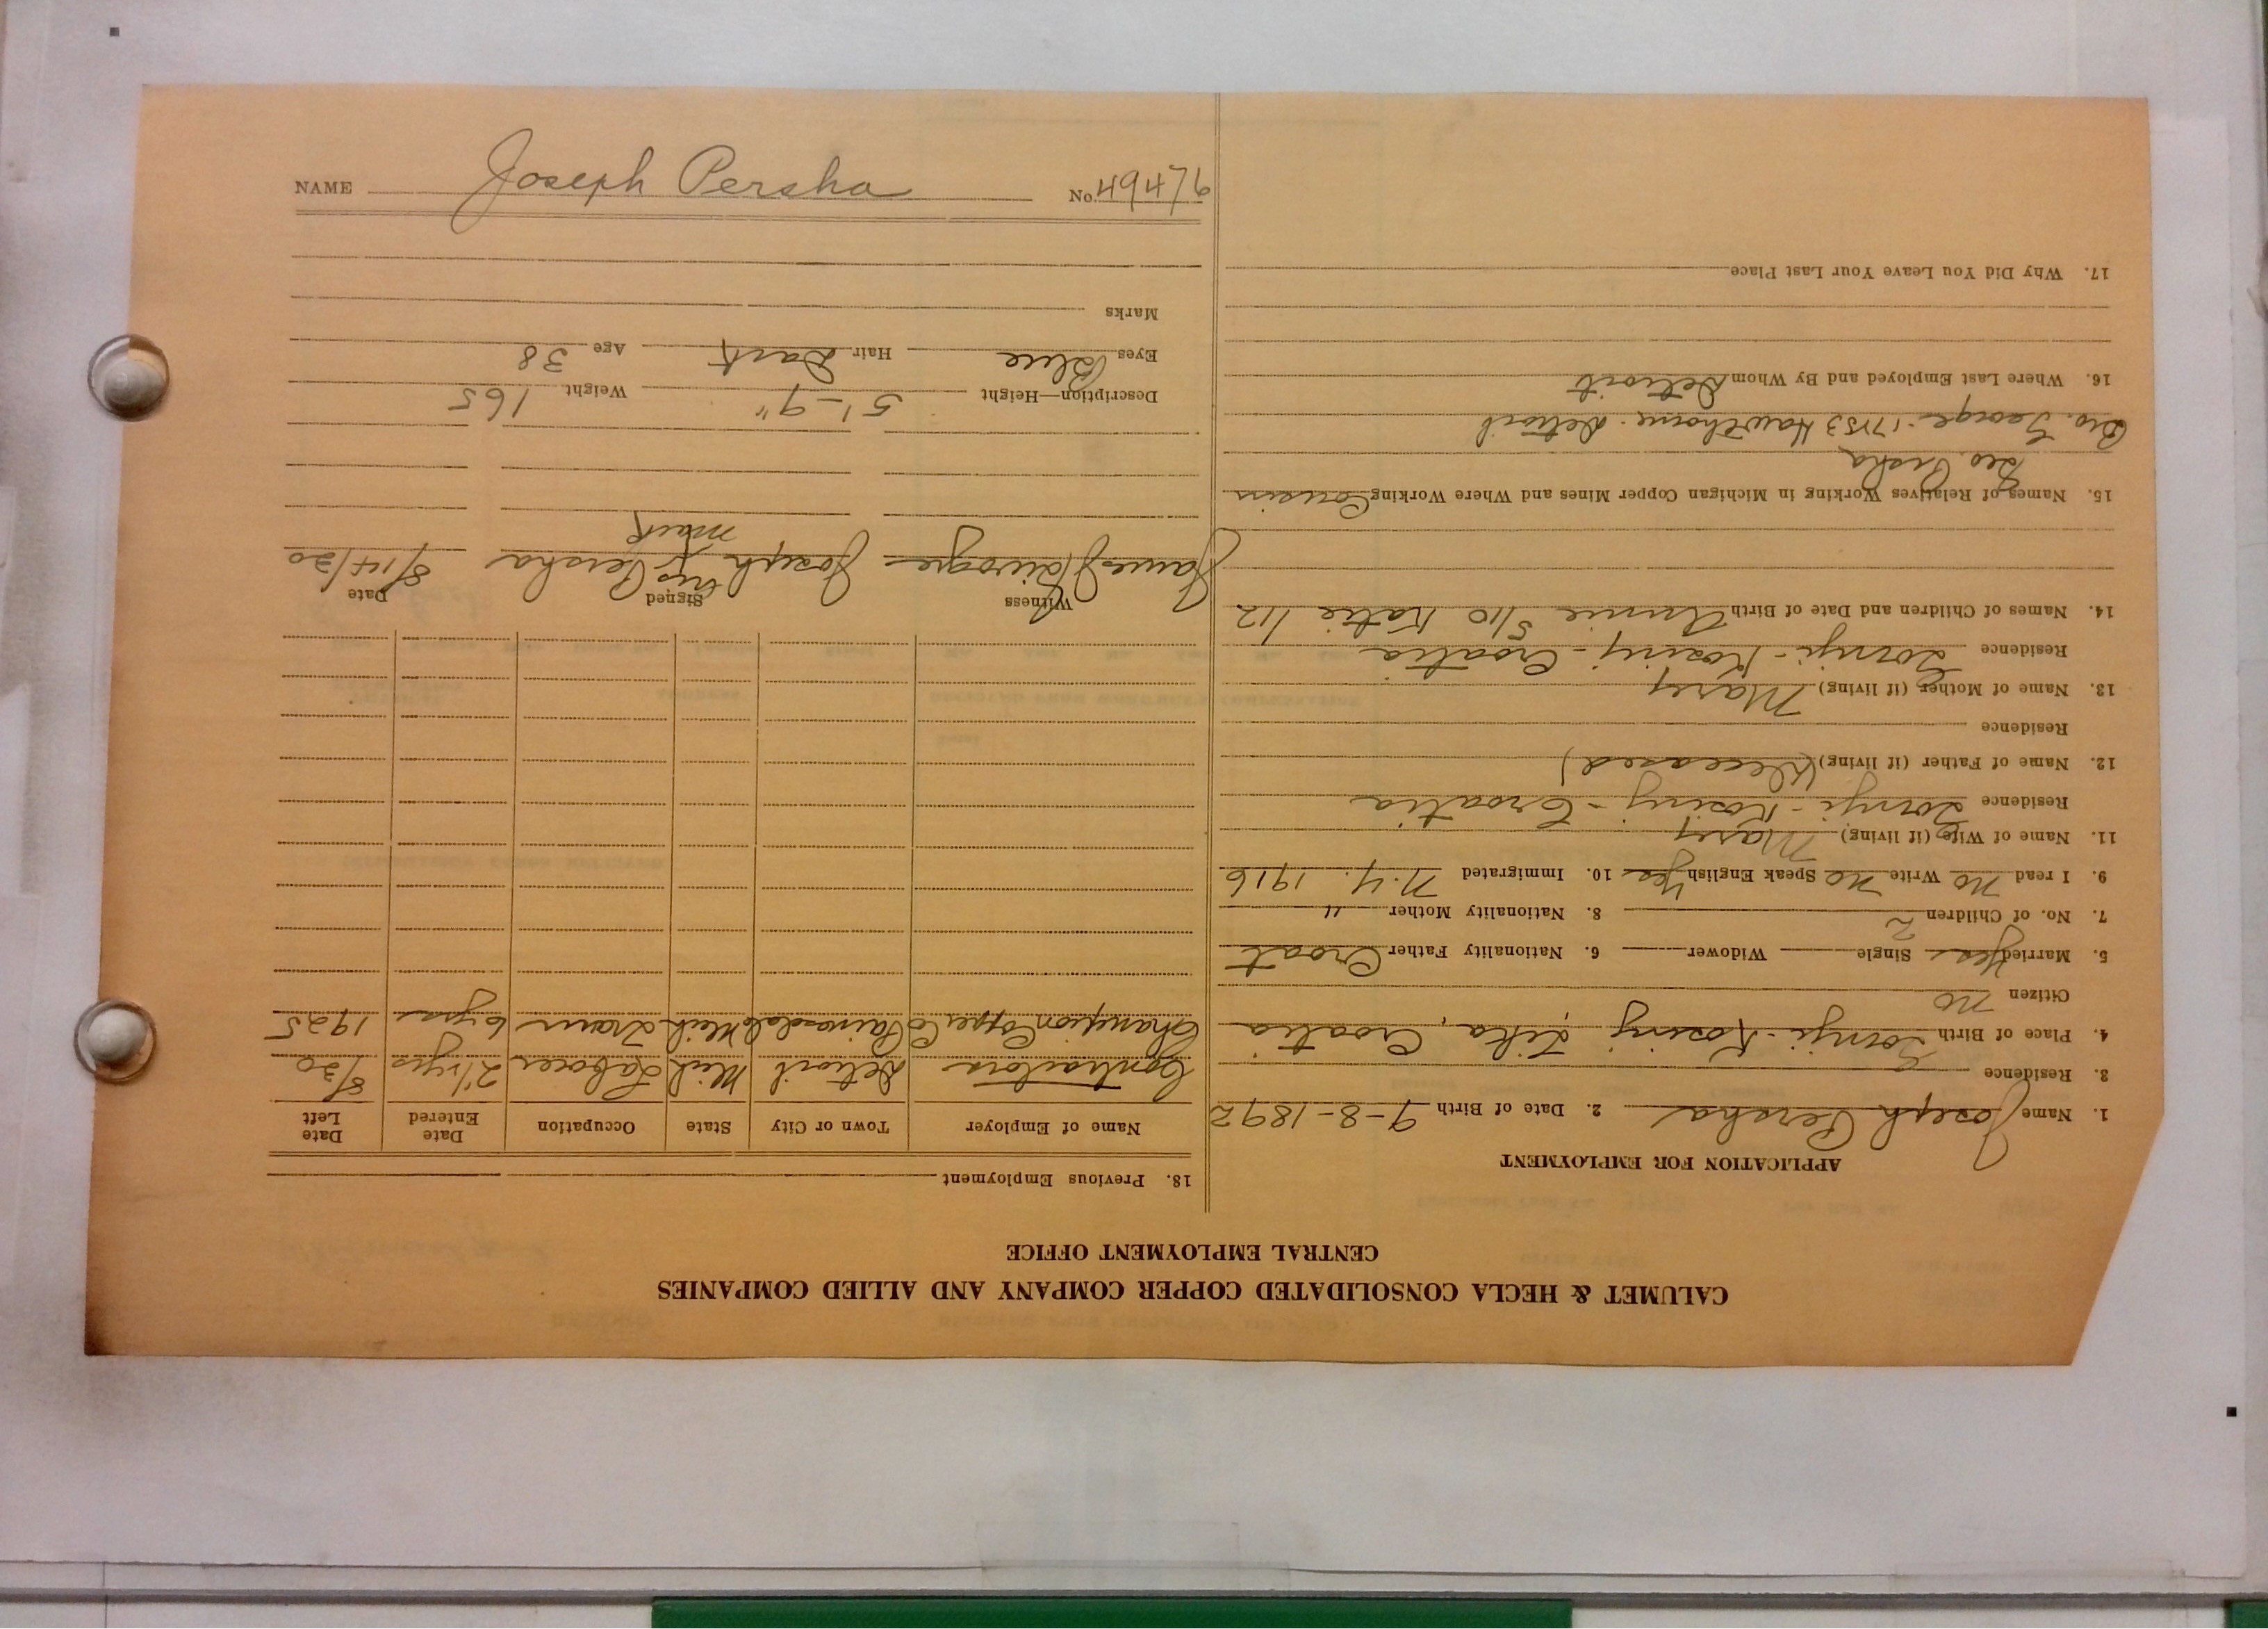 CALUMET & HECLA CONSOLIDATED COPPER COMPANY AND ALLIED COMPANIES
CENTRAL EMPLOYMENT OFFICE
APPLICATION FOR EMPLOYMENT
1. Name Joseph Persha 2. Date of Birth 9-8-1892
3. Residence
4. Place of Birth Gornji-Kosinj, Lika, Croatia
Citizen no
5. Married Yes Single Widower 6. Nationality Father Croat
7. No. of Children 2 8. Nationality Mother "
9. I read no Write no Speak English Yes 10. Immigrated N.Y. 1916
11. Name of Wife (if living) Mary
Residence Gornji-Kosinj-Croatia
12. Name of Father (if living) (Deceased)
Residence
13. Name of Mother (if living) Mary
Residence Gornji-Kosinj-Croatia
14. Names of Children and Date of Birth Annie 5/10 Katie 1/12
15. Names of Relatives Working in Michigan Copper Mines and Where Working Cousin
Geo. Persha
Bro. George-17153 Hawthorne-Detroit
16. Where Last Employed and By Whom Detroit
17. Why Did You Leave Your Last Place
18. Previous Employment
Name of Employer Town or City State Occupation Date Entered Date Left
Contractors Detroit Mich Laborer 2 1/2 yrs 8/30
Champion Copper Co Painesdale Mich Tram 6 yrs 1925
Witness Signed Date
James J. his Joseph x Persha 8/14/30
mark
Description—Height 5'-9" Weight 165
Eyes Blue Hair Dark Age 38
Marks
NAME Joseph Persha No. 49476